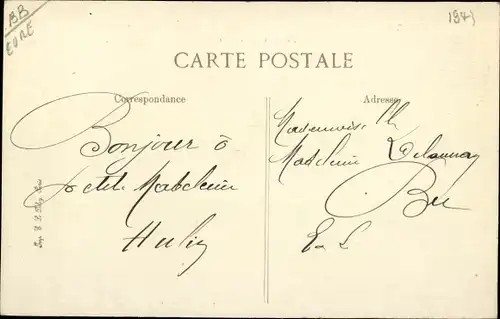 BB
EURE
1941
CARTE POSTALE
Correspondance
Adresse
Bonjour à
petite Madeleine
Mademoiselle
Madeleine Delaunay
Bu
E. L